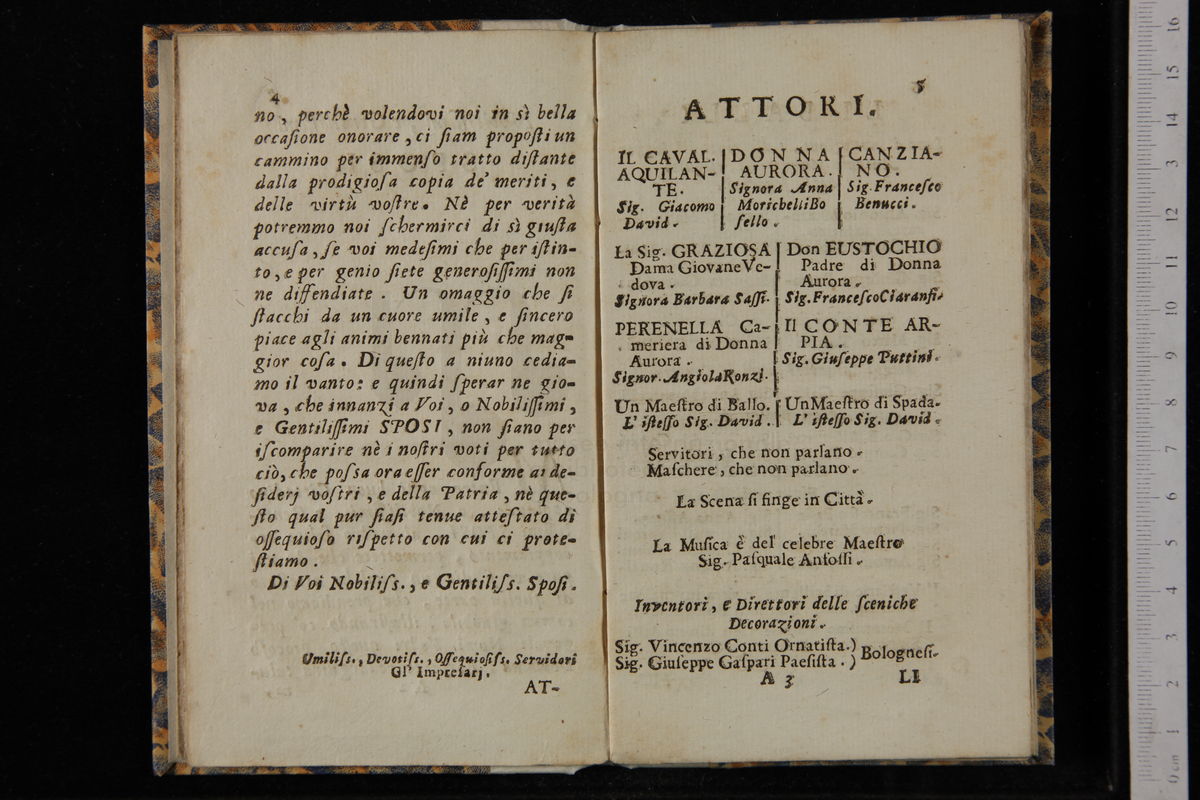 4
no, perchè volendovi noi in sì bella
occaſione onorare, ci ſiam propoſti un
cammino per immenſo tratto diſtante
dalla prodigioſa copia de' meriti, e
delle virtù voſtre. Nè per verità
potremmo noi ſchermirci di sì giuſta
accuſa, ſe voi medeſimi che per iſtin-
to, e per genio ſiete generoſiſſimi non
ne diffendiate. Un omaggio che ſi
ſtacchi da un cuore umile, e ſincero
piace agli animi bennati più che mag-
gior coſa. Di queſto a niuno cedia-
mo il vanto: e quindi ſperar ne gio-
va, che innanzi a Voi, o Nobiliſſimi,
e Gentiliſſimi SPOSI, non ſiano per
iſcomparire nè i noſtri voti per tutto
ciò, che poſsa ora eſſer conforme ai de-
ſiderj voſtri, e della Patria, nè que-
ſto qual pur ſiaſi tenue atteſtato di
oſſequioſo riſpetto con cui ci prote-
ſtiamo.
Di Voi Nobiliſs., e Gentiliſs. Spoſi.
Umiliſs., Devotiſs., Oſſequioſiſs. Servidori
Gl' Impreſarj.
AT-
5
ATTORI.
IL CAVAL.
AQUILAN-
TE.
Sig. Giacomo
David.
DONNA
AURORA.
Signora Anna
MorichelliBo
ſello.
CANZIA-
NO.
Sig. Franceſco
Benucci.
La Sig. GRAZIOSA
Dama Giovane Ve-
dova.
Signora Barbara Saſſi.
Don EUSTOCHIO
Padre di Donna
Aurora.
Sig. Franceſco Ciaranfi.
PERENELLA Ca-
meriera di Donna
Aurora.
Signor. Angiola Ronzi.
Il CONTE AR-
PIA.
Sig. Giuſeppe Puttini.
Un Maeſtro di Ballo.
L' iſteſſo Sig. David.
Un Maeſtro di Spada.
L' iſteſſo Sig. David.
Servitori, che non parlano.
Maſchere, che non parlano.
La Scena ſi finge in Città.
La Muſica è del celebre Maeſtro
Sig. Paſquale Anfoſſi.
Inventori, e Direttori delle ſceniche
Decorazioni.
Sig. Vincenzo Conti Ornatiſta.)
Sig. Giuſeppe Gaſpari Paeſiſta.)
Bologneſi.
A 3
LI
0 cm 1 2 3 4 5 6 7 8 9 10 11 12 13 14 15 16